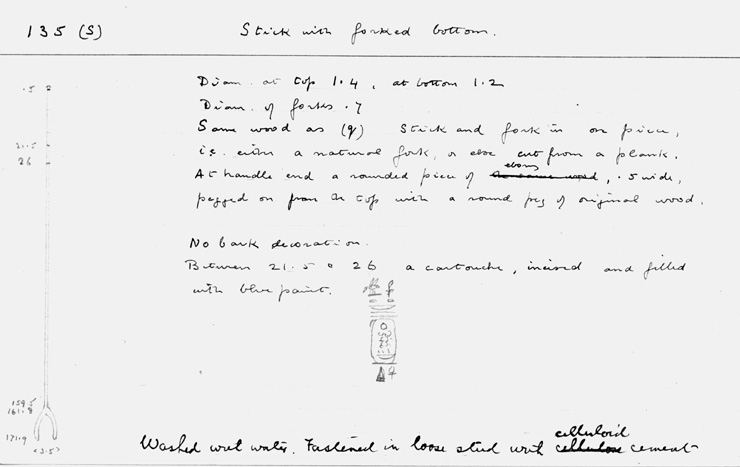 135 (S)
Stick with forked bottom.
Diam. at top 1.4, at bottom 1.2
Diam. of forks .7
Same wood as (q) Stick and fork in one piece,
i.e. either a natural fork, or else cut from a plank.
At handle end a rounded piece of ebony, .5 wide,
pegged on from the top with a round peg of original wood.
No bark decoration.
Between 21.5 & 26 a cartouche, incised and filled
with blue paint.
.5
21.5
26
159.5
161.8
171.9
<3.5>
Washed with water. Fastened in loose stud with celluloid cement